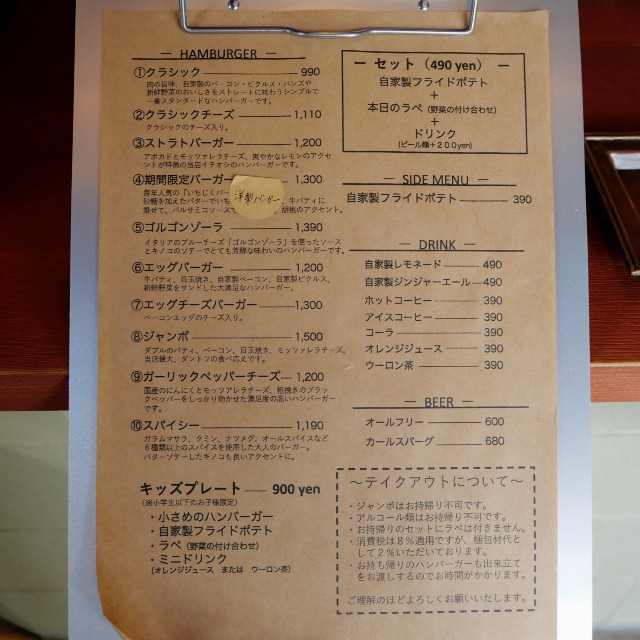 — HAMBURGER —
①クラシック 990
肉の旨味、自家製のベーコン・ピクルス・バンズや
新鮮野菜のおいしさをストレートに味わうシンプルで
一番スタンダードなハンバーガーです。
②クラシックチーズ 1,110
クラシックのチーズ入り。
③ストラトバーガー 1,200
アボカドとモッツァレラチーズ、爽やかなレモンのアクセ
ントが特徴の当店イチオシのハンバーガーです。
④期間限定バーガー 1,300
洋梨バーガー
毎年人気の「いちじくバー
砂糖を加えたバターでいち 、牛パティに
乗せて、バルサミコソースで 胡桃のアクセント。
⑤ゴルゴンゾーラ 1,390
イタリアのブルーチーズ「ゴルゴンゾーラ」を使ったソース
とキノコのソテーでとても芳醇な味わいのハンバーガーです。
⑥エッグバーガー 1,200
牛パティ、目玉焼き、自家製ベーコン、自家製ピクルス、
新鮮野菜をサンドした大満足なハンバーガー。
⑦エッグチーズバーガー 1,300
ベーコンエッグのチーズ入り。
⑧ジャンボ 1,500
ダブルのパティ、ベーコン、目玉焼き、モッツァレラチーズ。
当店最大、ダントツの食べ応えです。
⑨ガーリックペッパーチーズ 1,200
国産のにんにくとモッツァレラチーズ、粗挽きのブラッ
クペッパーをしっかり効かせた満足度の高いハンバーガー
です。
⑩スパイシー 1,190
ガラムマサラ、クミン、ナツメグ、オールスパイスなど
６種類以上のスパイスを使用した大人のバーガー。
バターソテーしたキノコも良いアクセントに。
キッズプレート 900 yen
(※小学生以下のお子様限定)
・小さめのハンバーガー
・自家製フライドポテト
・ラペ (野菜の付け合わせ)
・ミニドリンク
(オレンジジュース または ウーロン茶)
— セット（490 yen） —
自家製フライドポテト
＋
本日のラペ (野菜の付け合わせ)
＋
ドリンク
(ビール類＋２００yen)
— SIDE MENU —
自家製フライドポテト 390
— DRINK —
自家製レモネード 490
自家製ジンジャーエール 490
ホットコーヒー 390
アイスコーヒー 390
コーラ 390
オレンジジュース 390
ウーロン茶 390
— BEER —
オールフリー 600
カールスバーグ 680
～テイクアウトについて～
・ジャンボはお持帰り不可です。
・アルコール類はお持帰り不可です。
・お持帰りのセットにラペは付きません。
・消費税は８％適用ですが、梱包材代と
して２％いただいております。
・お持ち帰りのハンバーガーも出来立て
をお渡しするのでお時間がかかります。
ご理解のほどよろしくお願いいたします。